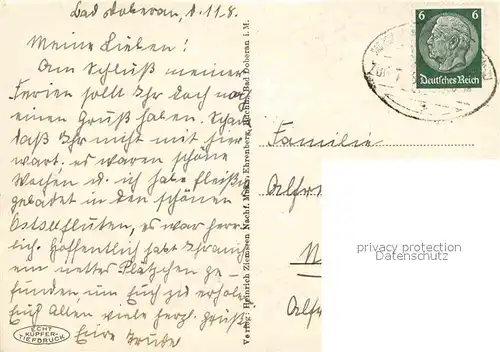 Bad Doberan, d. 11.8.
Meine Lieben!
Am Schluß meiner
Ferien sollt Ihr doch noch
einen Gruß haben. Schade
daß Ihr nicht mit hier
wart. es waren schöne
Wochen u. ich habe fleißig
gebadet in den schönen
Ostseefluten, es war herr
lich. Hoffentlich habt Ihr auch
ein nettes Plätzchen ge-
funden, um Euch zu erholen
Euch Allen viele herzl. Grüße
Eure Trude
ECHT
KUPFER-
TIEFDRUCK
Verlag: Heinrich Ziemssen Nachf. Ehrenberg, Buchh., Bad Doberan i. M.
6 6
Deutsches Reich
Familie
Alfr
N
Alfr
privacy protection
Datenschutz